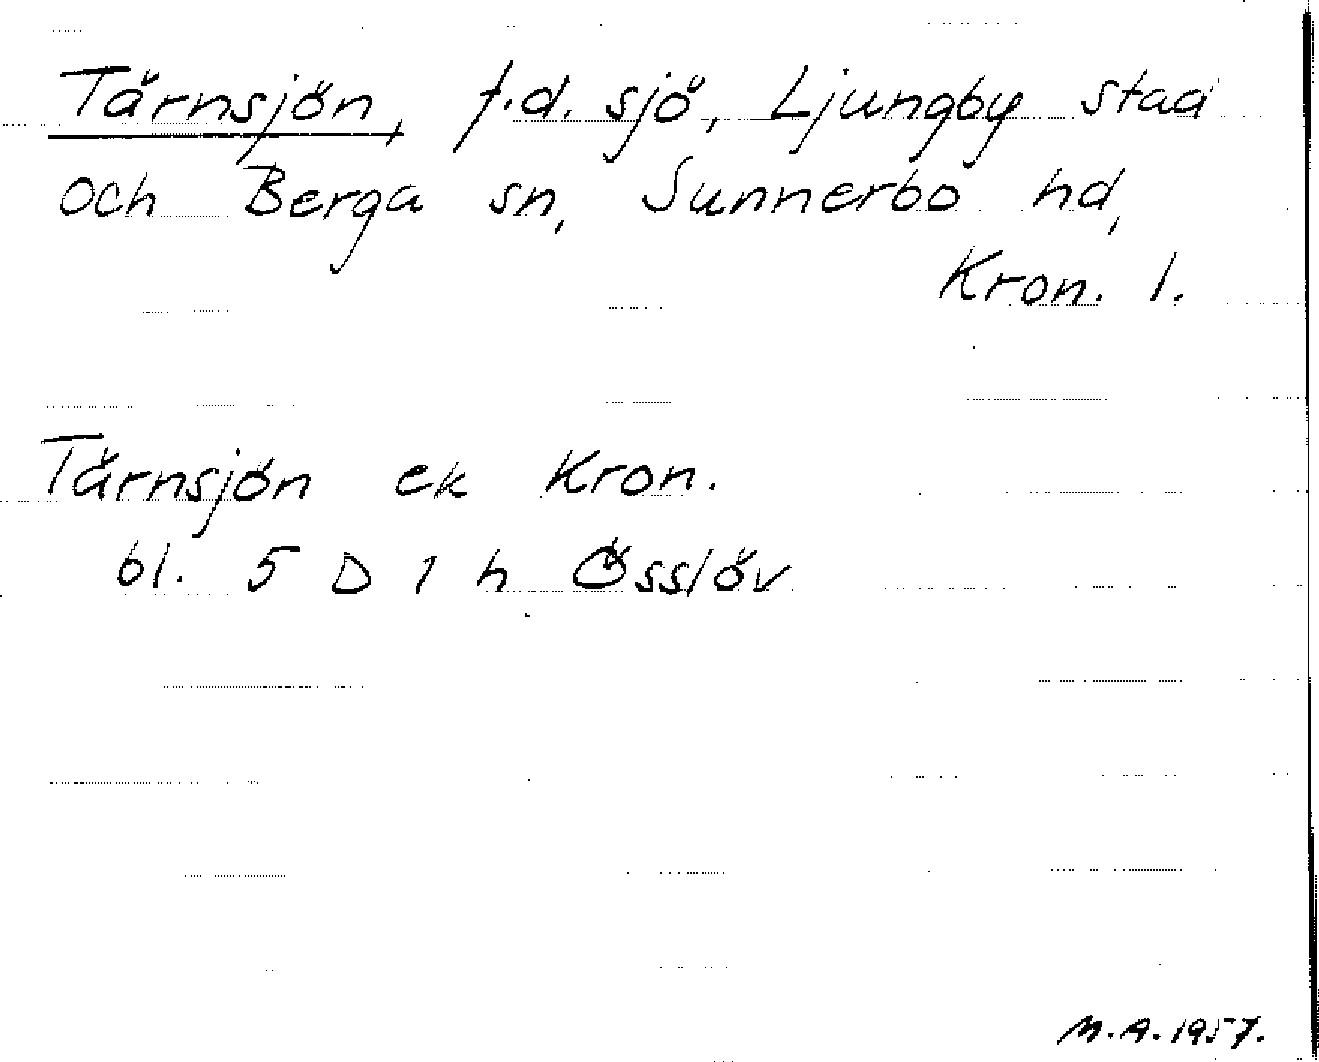 Tärnsjön, f.d. sjö, Ljungby stad
och Berga sn, Sunnerbo hd,
Kron. l.
Tärnsjön ek Kron.
bl. 5 D 1 h Össlöv
M.A. 1957.